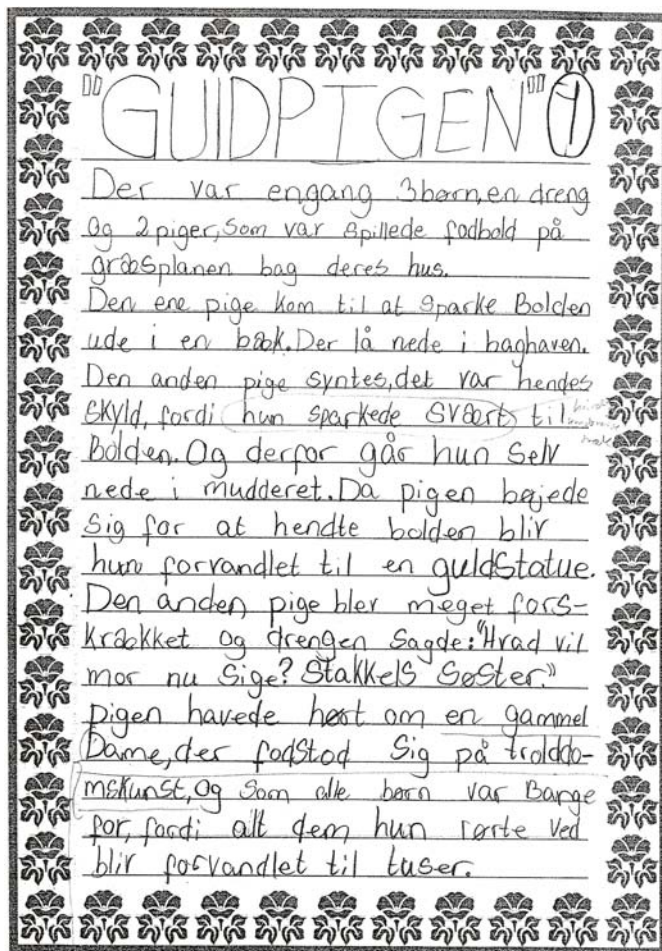 "GUIDPIGEN" 1
Der var engang 3børn, en dreng
og 2piger, som var spillede fodbold på
græsplanen bag deres hus.
Den ene pige kom til at sparke Bolden
ude i en bæk. Der lå nede i baghaven.
Den anden pige syntes, det var hendes
skyld, fordi hun sparkede svært til
Bolden. Og derfor går hun selv
nede i mudderet. Da pigen bøjede
sig for at hendte bolden blir
hun forvandlet til en guldstatue.
Den anden pige blev meget fors-
krækket og drengen sagde: "Hvad vil
mor nu sige? Stakkels søster."
pigen havede hørt om en gammel
Dame, der fodstod sig på troldo-
mskunst, og som alle børn var Bange
for, fordi alt dem hun rørte ved
blir forvandlet til tuser.